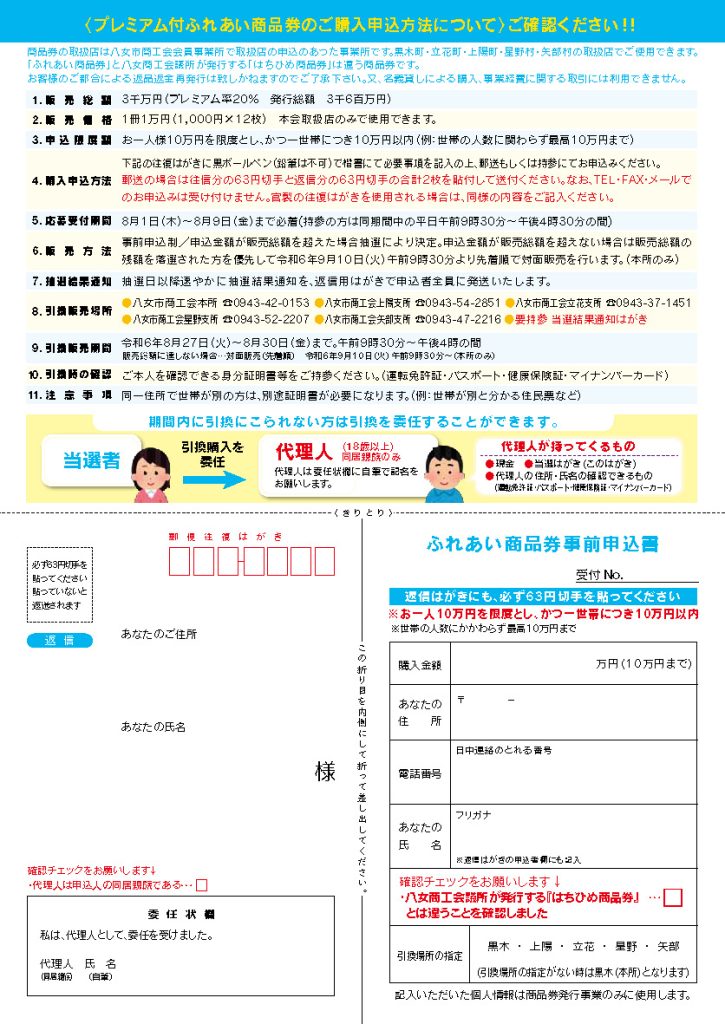 〈プレミアム付ふれあい商品券のご購入申込方法について〉ご確認ください!!
商品券の取扱店は八女市商工会会員事業所で取扱店の申込のあった事業所です。黒木町・立花町・上陽町・星野村・矢部村の取扱店でご使用できます。
「ふれあい商品券」と八女商工会議所が発行する「はちひめ商品券」は違う商品券です。
お客様のご都合による返品返金再発行は致しかねますのでご了承下さい。又、名義貸しによる購入、事業経費に関する取引には利用できません。
1. 販売総額 3千万円(プレミアム率20% 発行総額 3千6百万円)
2. 販売価格 1冊1万円(1,000円×12枚) 本会取扱店のみで使用できます。
3. 申込限度額 お一人様10万円を限度とし、かつ一世帯につき10万円以内(例:世帯の人数に関わらず最高10万円まで)
4. 購入申込方法 下記の往復はがきに黒ボールペン(鉛筆は不可)で楷書にて必要事項を記入の上、郵送もしくは持参にてお申込みください。
郵送の場合は往信分の63円切手と返信分の63円切手の合計2枚を貼付して送付ください。なお、TEL・FAX・メールで
のお申込みは受け付けません。官製の往復はがきを使用される場合は、同様の内容をご記入ください。
5. 応募受付期間 8月1日(木)~8月9日(金)まで必着(持参の方は同期間中の平日午前9時30分~午後4時30分の間)
6. 販売方法 事前申込制/申込金額が販売総額を超えた場合抽選により決定。申込金額が販売総額を超えない場合は販売総額の
残額を落選された方を優先して令和6年9月10日(火)午前9時30分より先着順で対面販売を行います。(本所のみ)
7. 抽選結果通知 抽選日以降速やかに抽選結果通知を、返信用はがきで申込者全員に発送いたします。
8. 引換販売場所 ●八女市商工会本所 ☎0943-42-0153 ●八女市商工会上陽支所 ☎0943-54-2851 ●八女市商工会立花支所 ☎0943-37-1451
●八女市商工会星野支所 ☎0943-52-2207 ●八女市商工会矢部支所 ☎0943-47-2216 ●要持参 当選結果通知はがき
9. 引換販売期間 令和6年8月27日(火)~8月30日(金)まで。午前9時30分~午後4時の間
販売総額に達しない場合…対面販売(先着順) 令和6年9月10日(火)午前9時30分~(本所のみ)
10. 引換時の確認 ご本人を確認できる身分証明書等をご持参ください。(運転免許証・パスポート・健康保険証・マイナンバーカード)
11. 注意事項 同一住所で世帯が別の方は、別途証明書が必要になります。(例:世帯が別と分かる住民票など)
期間内に引換にこられない方は引換を委任することができます。
当選者
引換購入を
委任
代理人 (18歳以上)
同居親族のみ
代理人は委任状欄に自筆で記名を
お願いします。
代理人が持ってくるもの
●現金 ●当選はがき(このはがき)
●代理人の住所・氏名の確認できるもの
(運転免許証・パスポート・健康保険証・マイナンバーカード)
〈きりとり〉
郵便往復はがき
必ず63円切手を
貼ってください
貼っていないと
返送されます
返信
あなたのご住所
あなたの氏名
様
確認チェックをお願いします↓
・代理人は申込人の同居親族である…□
委任状欄
私は、代理人として、委任を受けました。
代理人 氏名
(同居親族) (自筆)
この折り目を内側にして折って差し出してください。
ふれあい商品券事前申込書
受付No.
返信はがきにも、必ず63円切手を貼ってください
※お一人10万円を限度とし、かつ一世帯につき10万円以内
※世帯の人数にかかわらず最高10万円まで
購入金額 万円(10万円まで)
あなたの
住所
〒 −
電話番号
日中連絡のとれる番号
あなたの
氏名
フリガナ
※返信はがきの申込者欄にも記入
確認チェックをお願いします↓
・八女商工会議所が発行する『はちひめ商品券』 …□
とは違うことを確認しました
引換場所の指定 黒木・上陽・立花・星野・矢部
(引換場所の指定がない時は黒木(本所)となります)
記入いただいた個人情報は商品券発行事業のみに使用します。